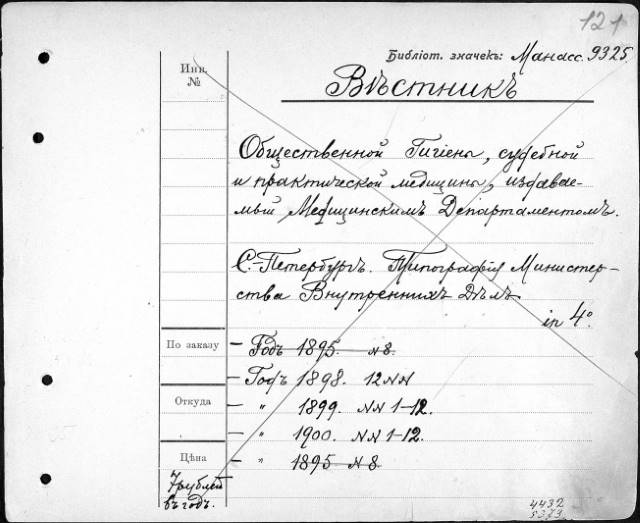 121
Библіот. значекъ: Манасс. 9325.
Инв. №
Вѣстникъ
Общественной Гигіены, судебной
и практической медицины, издавае-
мый Медицинскимъ Департаментомъ.
С.-Петербургъ. Типографія Министер-
ства Внутреннихъ Дѣлъ
in 4°
По заказу
— Годъ 1895. N 8.
— Годъ 1898. 12 NN
Откуда
— " 1899. NN 1-12.
— " 1900. NN 1-12.
Цѣна
— " 1895 N 8.
7 рублей
въ годъ.
4432